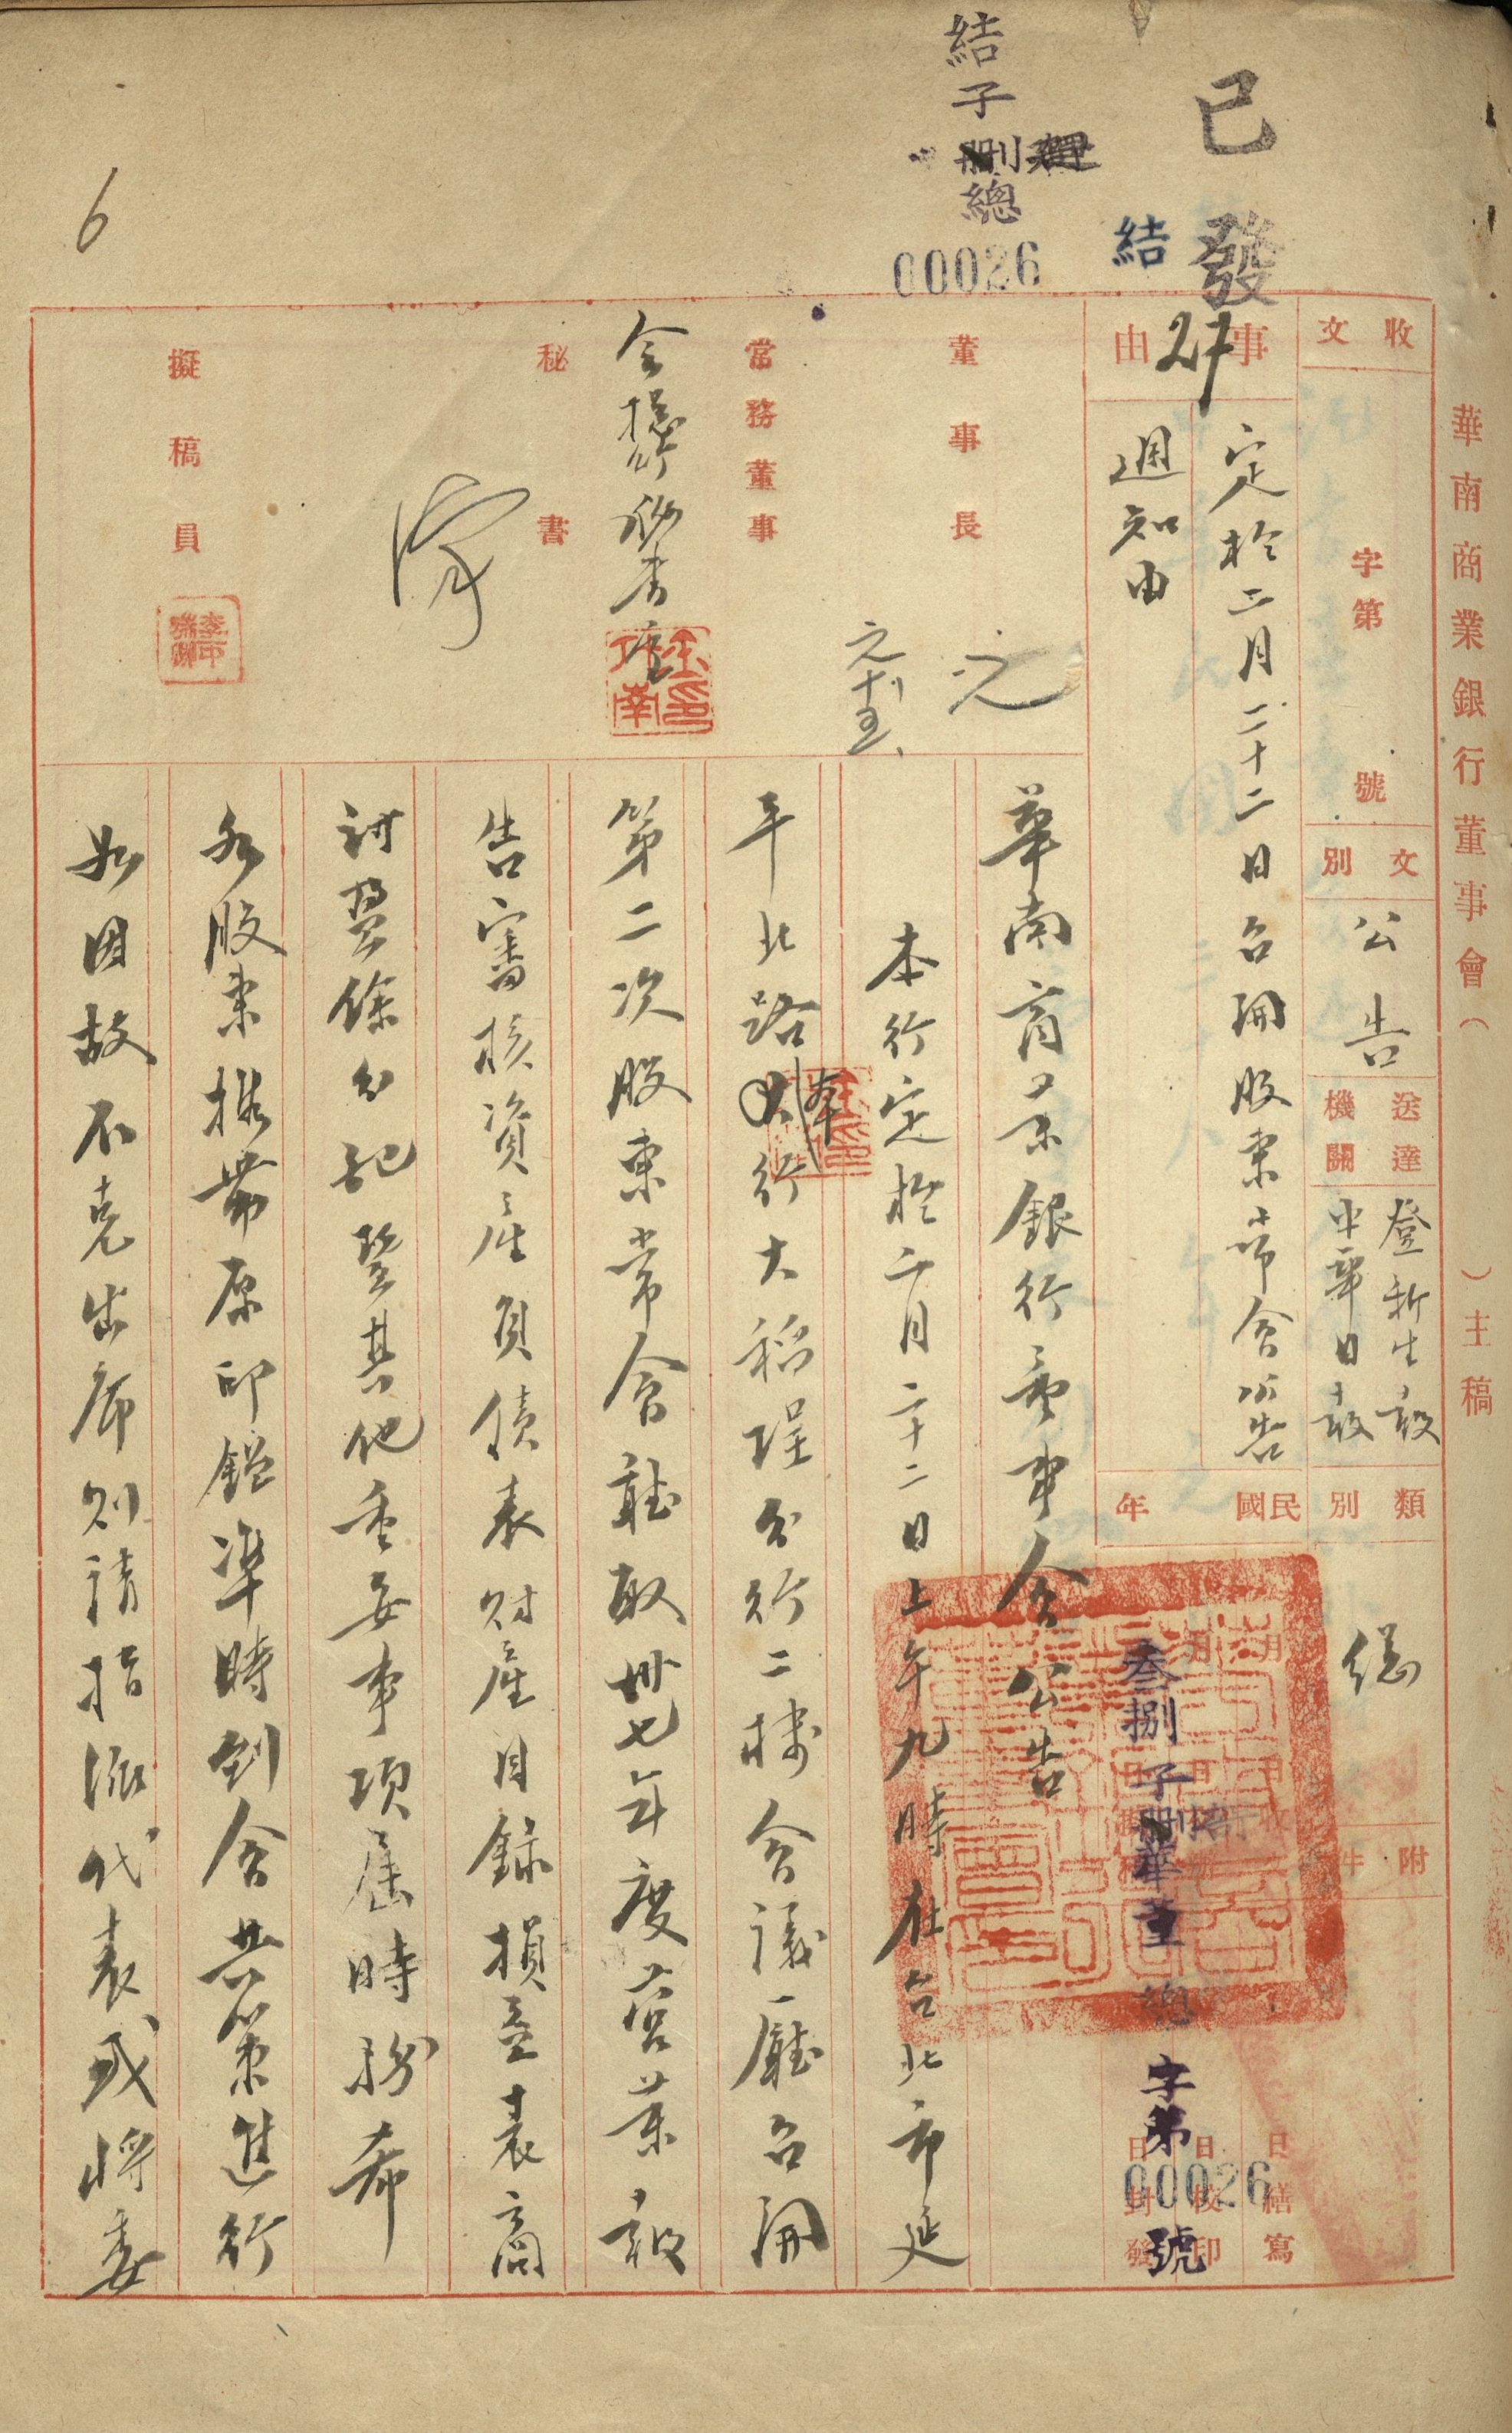 華南商業銀行董事會（　　）主稿
收文
字第
號
文別
公告
送達機關
登新生報
中華日報
類別
總
附件
事由
定於二月二十二日召開股東常會公告
週知由
27
已發
結
結
子
刪
總
00026
6
民國
年
月
月
叁捌子刪華董總字第00026號
日繕寫
日校印
日封發
董事長
元
元、十五、
常務董事
秘書
擬稿員
華南商業銀行董事會公告
本行定於二月二十二日上午九時在台北市延
平北路本行大稻埕分行二樓會議廳召開
第二次股東常會聽取卅七年度營業報
告審核資產負債表財產目錄損益表商
討盈餘分配暨其他重要事項屆時務希
各股東攜帶原印鑑準時到會共策進行
如因故不克出席則請指派代表或將委